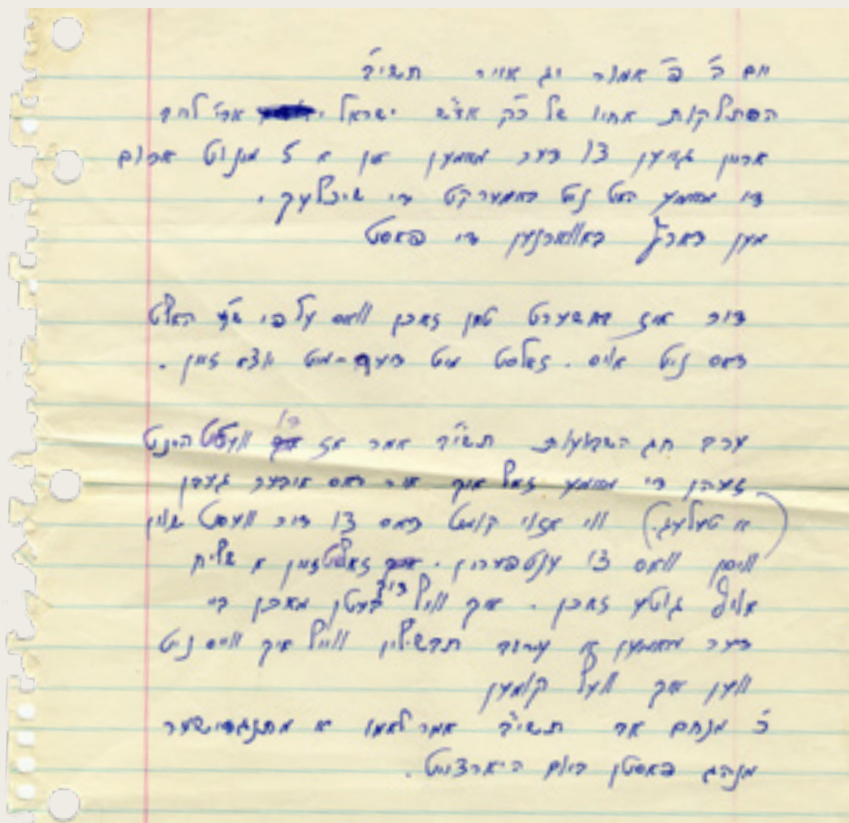 יום ב׳ פ׳ אמור יג אייר תשי״ב
הסתלקות אחיו של כ״ק אד״ש ישראל ארי׳ ליב
אריין געגאן צו דער מאמען אין א 5 מינוט ארום
די מאמע האט ניט באמערקט די שיכלעך.
מען דארף באווארענען די פאסט
דיר איז באשערט טאן זאכן וואס על פי שכל האלט
דאס ניט אויס. זאלסט מיט דעם-מיט יוצא זיין.
ערב חג השבועות תשי״ב אמר אז דו וועסט היינט
זעהן די מאמע זאל איך איר דאס איבער געבן
(א טעלעג.) ווי אזוי קומט דאס צו דיר וועסט שוין
וויסן וואס צו ענטפערין. זאלסט זיין א שליח
אויף גוטע זאכן. איך וויל דיך בעטן מאכן ביי
דער מאמען א עירוב תבשילין ווייל איך ווייס ניט
ווען איך וועל קומען
כ׳ מנחם אב תשי״ב אמר לאמו א מתנגדישער
מנהג פאסטן ביום היארצייט.